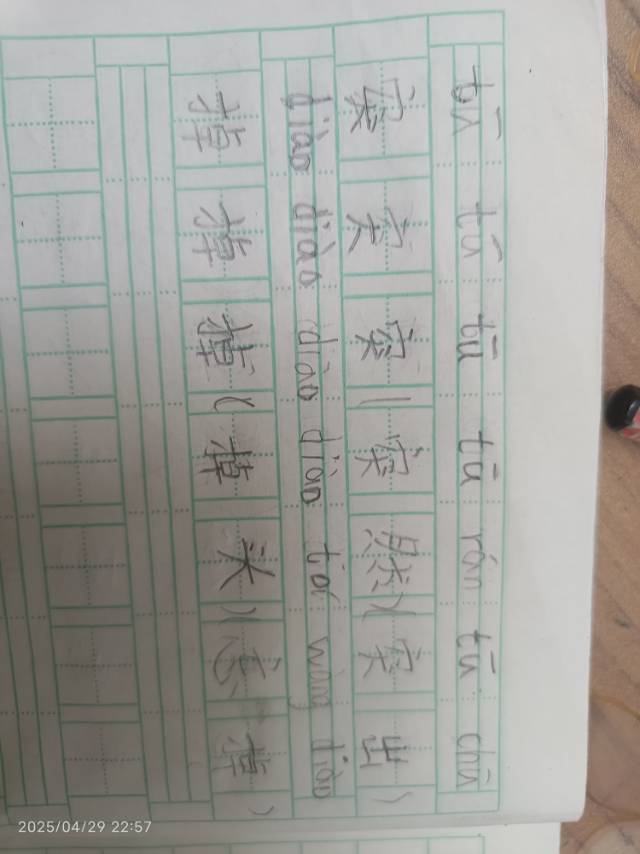 tū tū tū tū rán tū chū
突 突 突 (突 然)(突 出)
diào diào diào diào tóu wàng diào
掉 掉 掉 (掉 头)(忘 掉)
2025/04/29 22:57